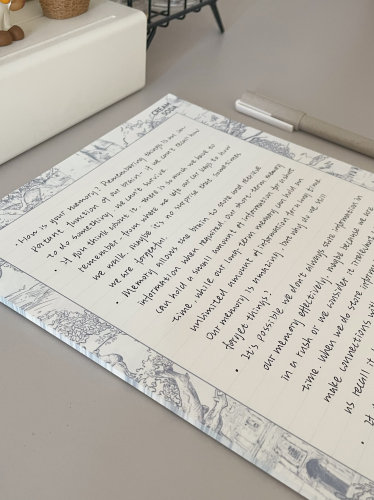 CREAM
SODA
• How is your memory? Remembering things is an im-
portant function of our brain. If we can't recall how
to do something, we can't survive.
• If you think about it, there is so much we have to
remember - from where we left our car keys to how
we walk. Maybe it's no surprise that sometimes
we are forgetful.
• Memory allows the brain to store and receive
information when required. Our short-term memory
can hold a small amount of information for a short
time, while our long-term memory can hold an
unlimited amount of information for a long time.
Our memory is amazing, but why do we still
forget things?
• It's possible we don't always store information in
our memory effectively, maybe because we are
in a rush or we consider it irrelevant
time. When we do store information
make connections wi
us recall it
• If